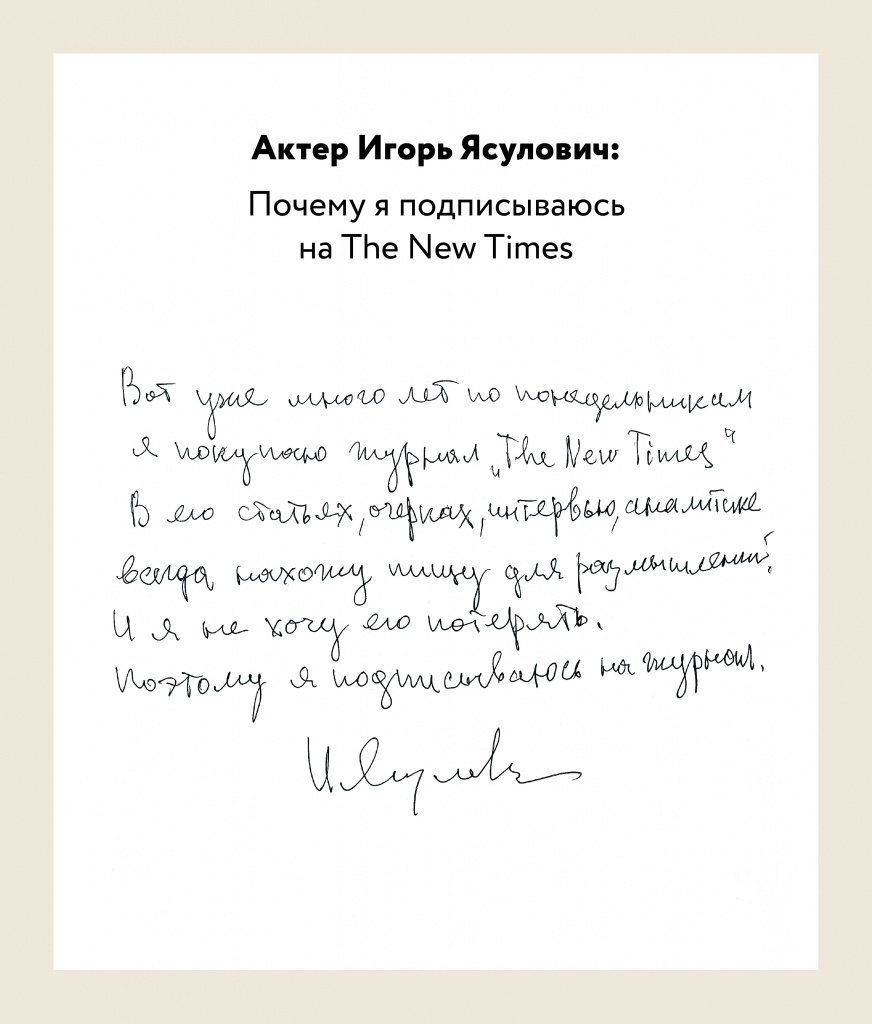 Актер Игорь Ясулович:
Почему я подписываюсь
на The New Times
Вот уже много лет по понедельникам
я покупаю журнал „The New Times“
В его статьях, очерках, интервью, аналитике
всегда нахожу пищу для размышлений.
И я не хочу его потерять.
Поэтому я подписываюсь на журнал.
И Ясулович